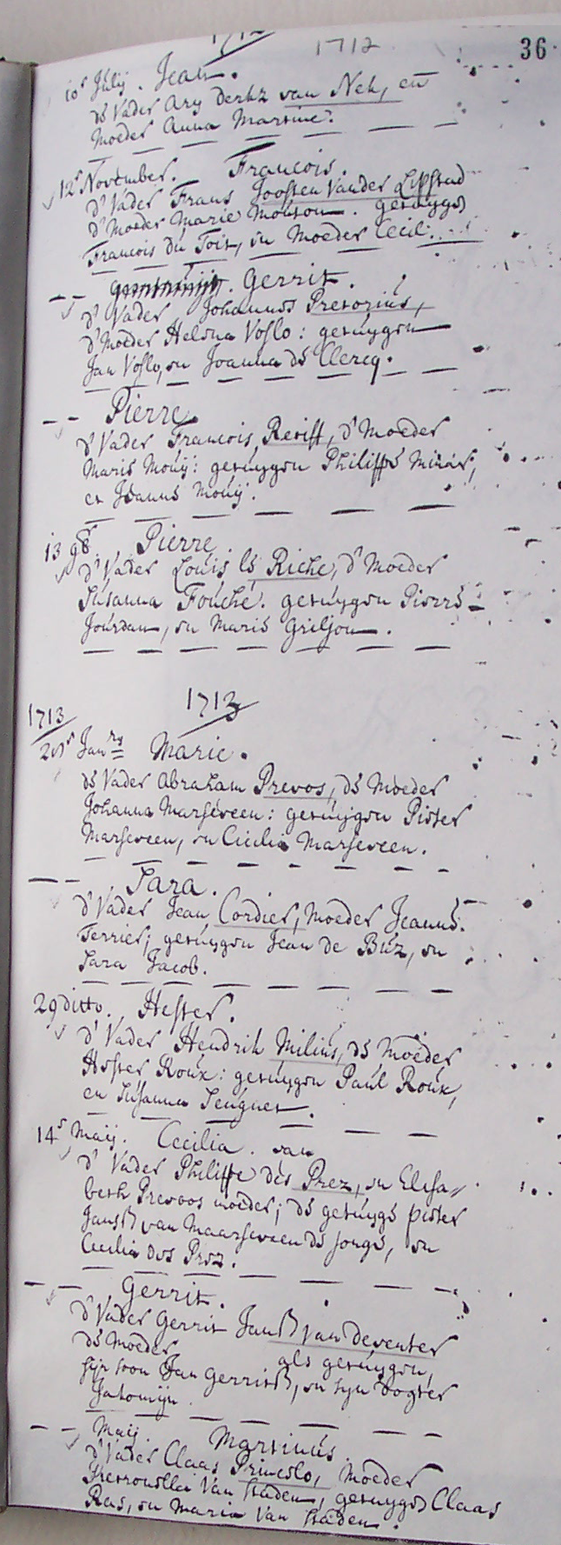 1712 36
10e Julij. Jean.
de Vader Ary Derkz van Nek, en
Moeder Anna Martine.
12e November. Francois.
d' Vader Frans Joosten Vander Lipstad
d' Moeder Marie Mouton. getuyge
Francois du Toit, en Moeder Cecil.
Gerrit.
d' Vader Johannes Pretorius,
d' Moeder Helena Voslo: getuygen
Jan Voslo, en Joanna de Clercq.
Pierre.
d' Vader Francois Retiff, d' Moeder
Marie Mouij: getuygen Philippe Minar,
en Jeanne Mouij.
Pierre
d' Vader Louis le Riche, d' Moeder
Susanna Fouche. getuygen Pierre
Jourdan, en Marie Griljon.
1713 1713
Janry Marie.
de Vader Abraham Prevos, de Moeder
Johanna Marseveen: getuijgen Pieter
Marseveen, en Cicilia Marseveen.
Sara.
d' Vader Jean Cordier, Moeder Jeanne
Terrier; getuygen Jean de Buz, en
Sara Jacob.
29 ditto. Hester.
d' Vader Hendrik Milius, de Moeder
Hester Roux: getuygen Paul Roux,
en Susanna Seugnet.
14e Maij. Cecilia. van
d' Vader Philippe des Prez, en Elisa
beth Prevoos moeder; de getuyge pieter
Jansz van Maarseveen de jonge, en
Cecilia des Prez.
Gerrit.
d' Vader Gerrit Jansz van Deventer
de Moeder als getuygen,
sijn soon Jan Gerritsz, en syn dogter
Jakomijn.
Maij. Martinus
d' Vader Claas Prinslo, Moeder
van Staden, getuyge Claas
Ras, en Maria van Staden.